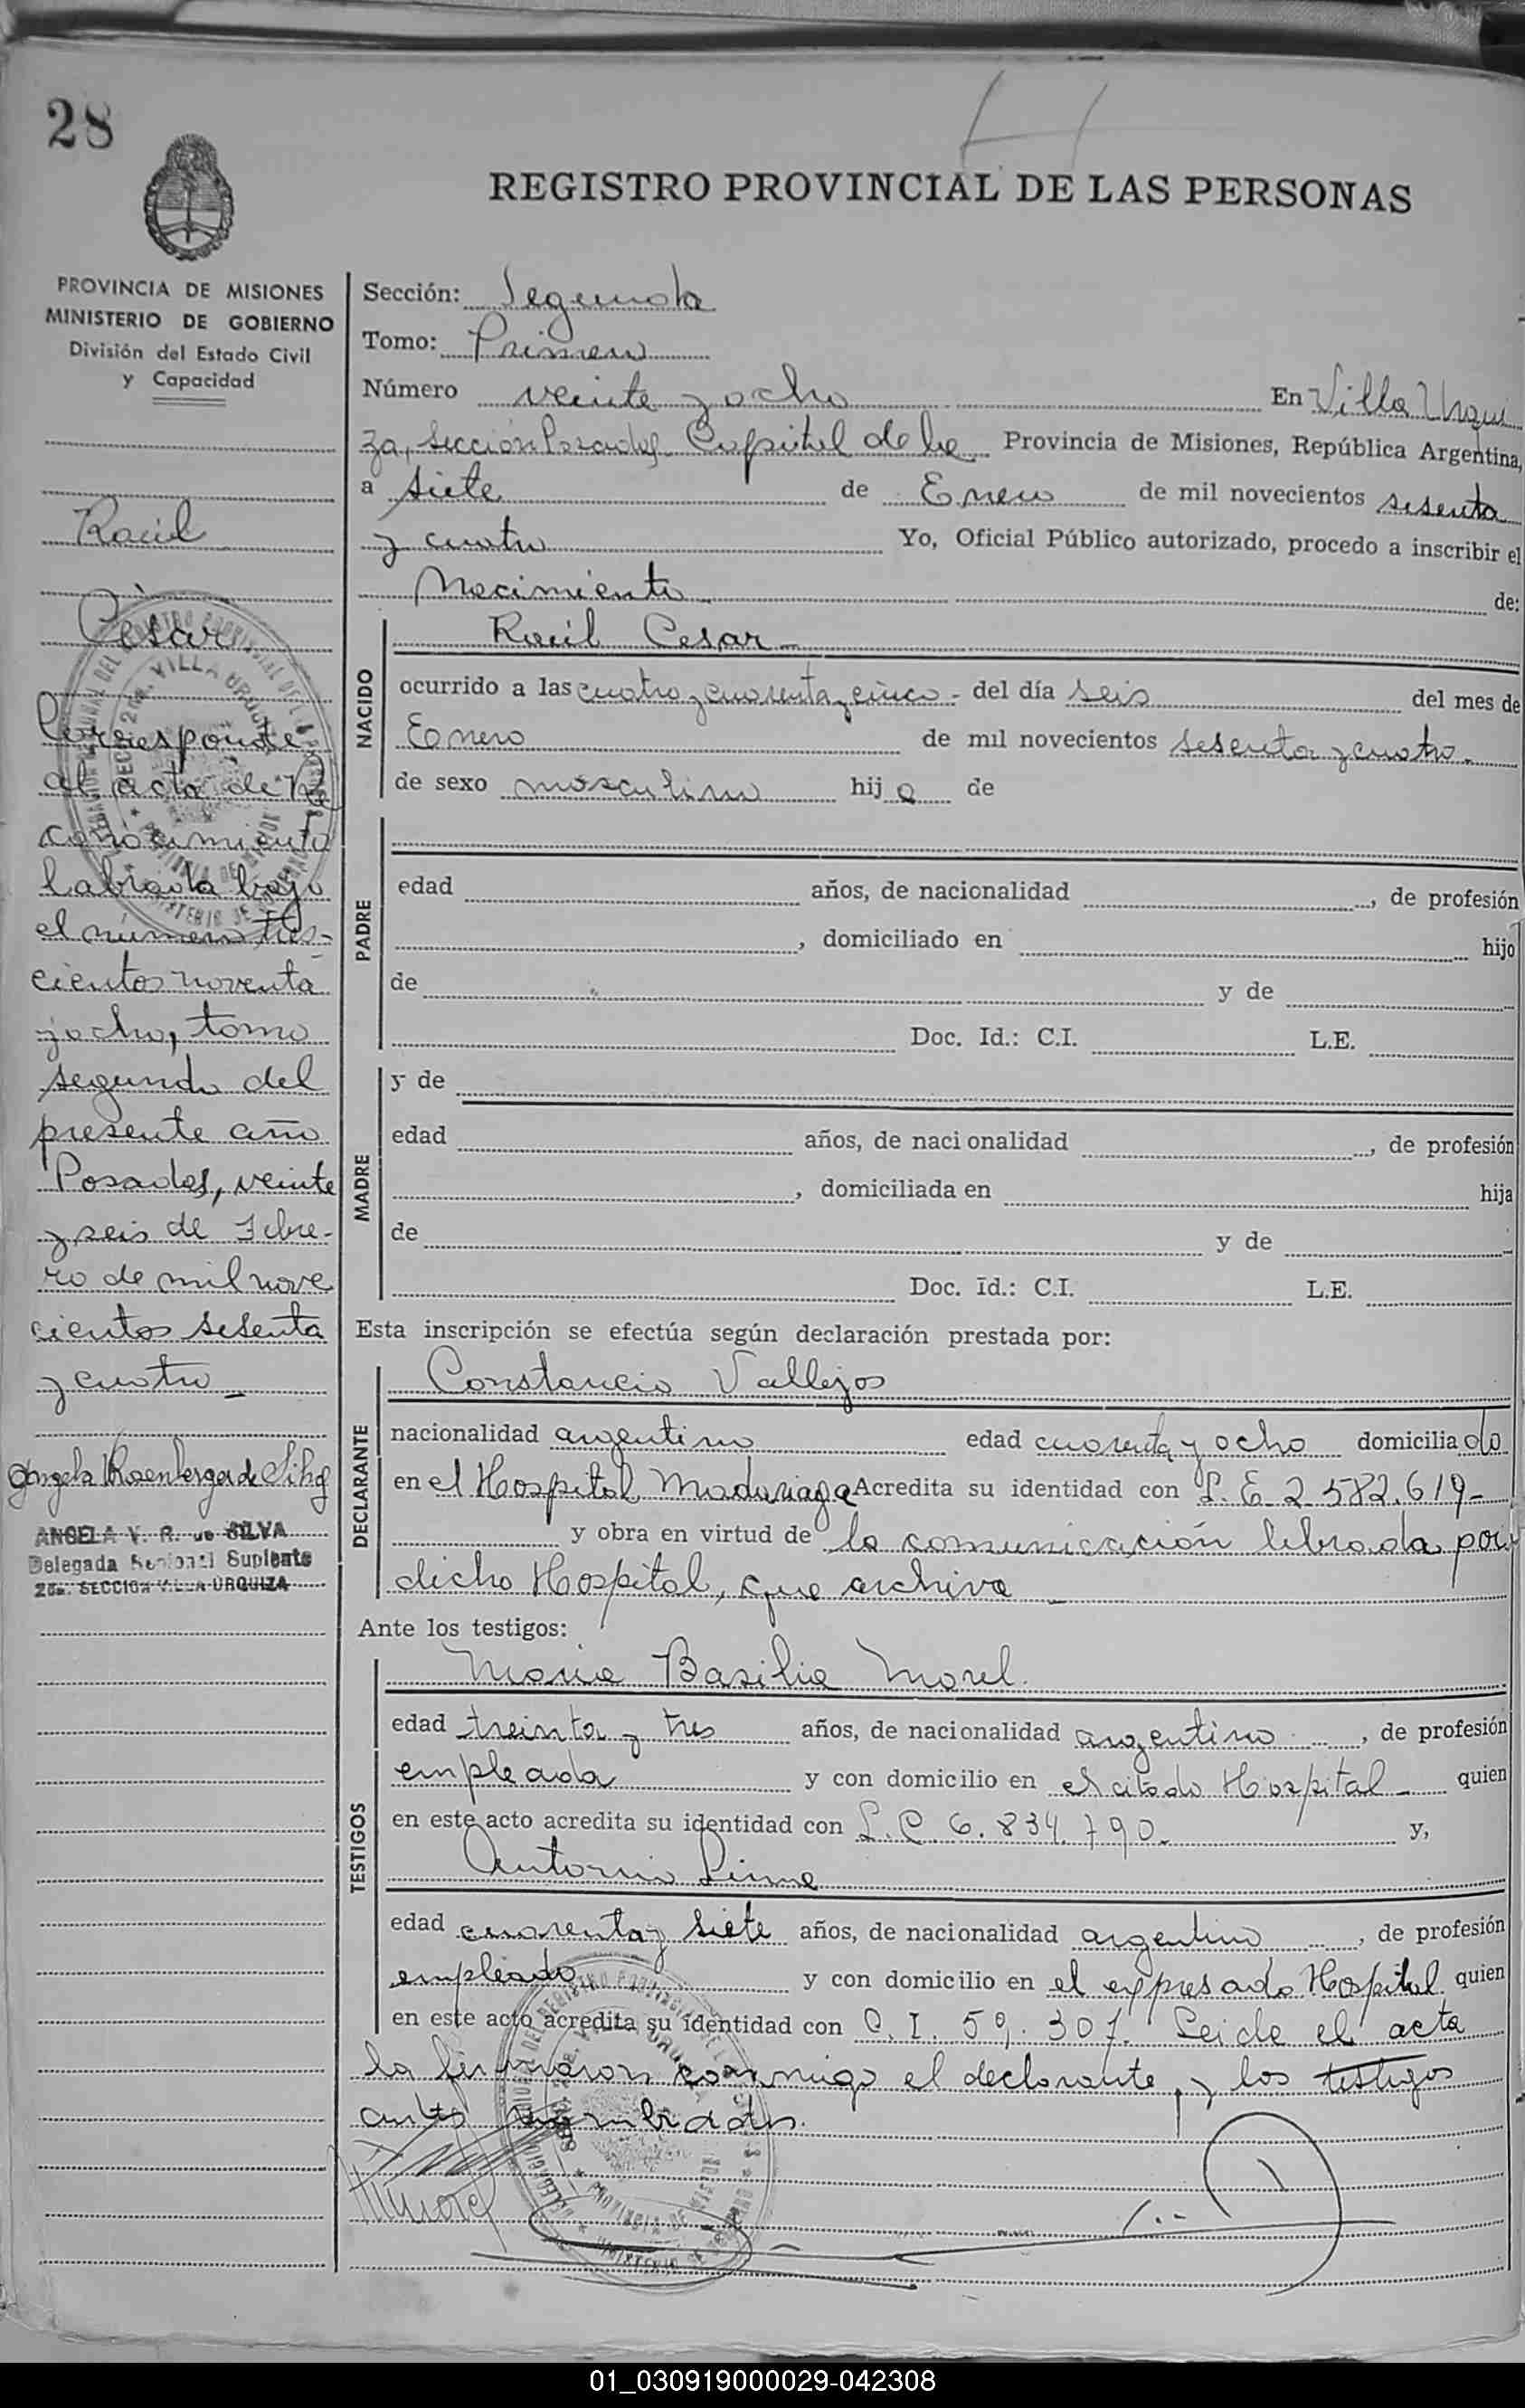 28
REGISTRO PROVINCIAL DE LAS PERSONAS
PROVINCIA DE MISIONES
MINISTERIO DE GOBIERNO
División del Estado Civil
y Capacidad
Raúl
Cesar
Corresponde
al acta de Re
conocimiento
labrada bajo
el número tres-
cientos noventa
y ocho, tomo
segundo del
presente año
Posadas, veinte
y seis de Febre-
ro de mil nove
cientos sesenta
y cuatro
Angela V. Rosenberger de Silva
ANGELA V. R. de SILVA
Delegada Regional Suplente
2da. SECCION VILLA URQUIZA
Sección: Segunda
Tomo: Primero
Número veinte y ocho En Villa Urqui
za, Sección Posadas Capital de la Provincia de Misiones, República Argentina,
a siete de Enero de mil novecientos sesenta
y cuatro Yo, Oficial Público autorizado, procedo a inscribir el
Nacimiento de:
NACIDO
Raúl Cesar
ocurrido a las cuatro y cuarenta y cinco - del día seis del mes de
Enero de mil novecientos sesenta y cuatro
de sexo masculino hij o de
PADRE
edad años, de nacionalidad , de profesión
, domiciliado en hijo
de y de
Doc. Id.: C.I. L.E.
MADRE
y de
edad años, de naci onalidad , de profesión
, domiciliada en hija
de y de
Doc. Id.: C.I. L.E.
Esta inscripción se efectúa según declaración prestada por:
DECLARANTE
Constancio Vallejos
nacionalidad argentino edad cuarenta y ocho domicilia do
en el Hospital Madariaga Acredita su identidad con L. E. 2.582.619-
y obra en virtud de la comunicación librada por
dicho Hospital, que archivo
Ante los testigos:
TESTIGOS
Maria Basilia Morel
edad treinta y tres años, de nacionalidad argentino , de profesión
empleada y con domicilio en el citado Hospital quien
en este acto acredita su identidad con L.C. 6.834.790 y,
Antonio Lima
edad cuarenta y siete años, de nacionalidad argentino , de profesión
empleado y con domicilio en el expresado Hospital quien
en este acto acredita su identidad con C.I. 59.307. Leida el acta
la firmaron conmigo el declarante, y los testigos
antes nombrados.
01_030919000029-042308